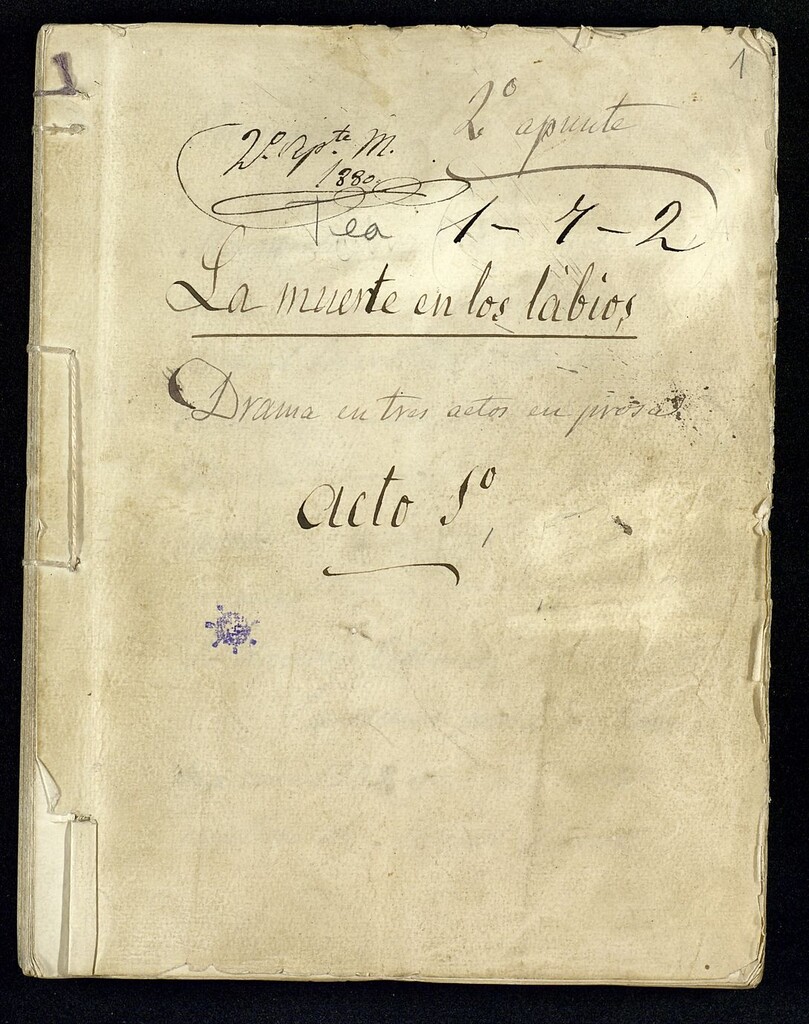 1
2º apunte
2º apte M.
1880
Tea 1-7-2
La muerte en los lábios
Drama en tres actos en prosa
Acto 1º,